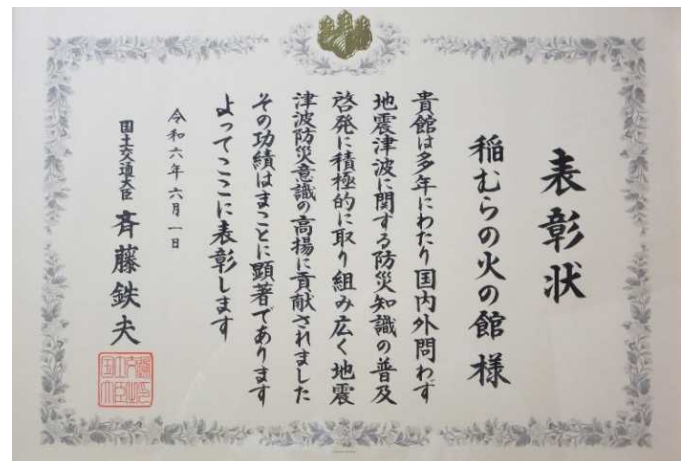 表彰状
稲むらの火の館 様
貴館は多年にわたり国内外問わず
地震津波に関する防災知識の普及
啓発に積極的に取り組み広く地震
津波防災意識の高揚に貢献されました
その功績はまことに顕著であります
よってここに表彰します
令和六年六月一日
国土交通大臣 斉藤鉄夫